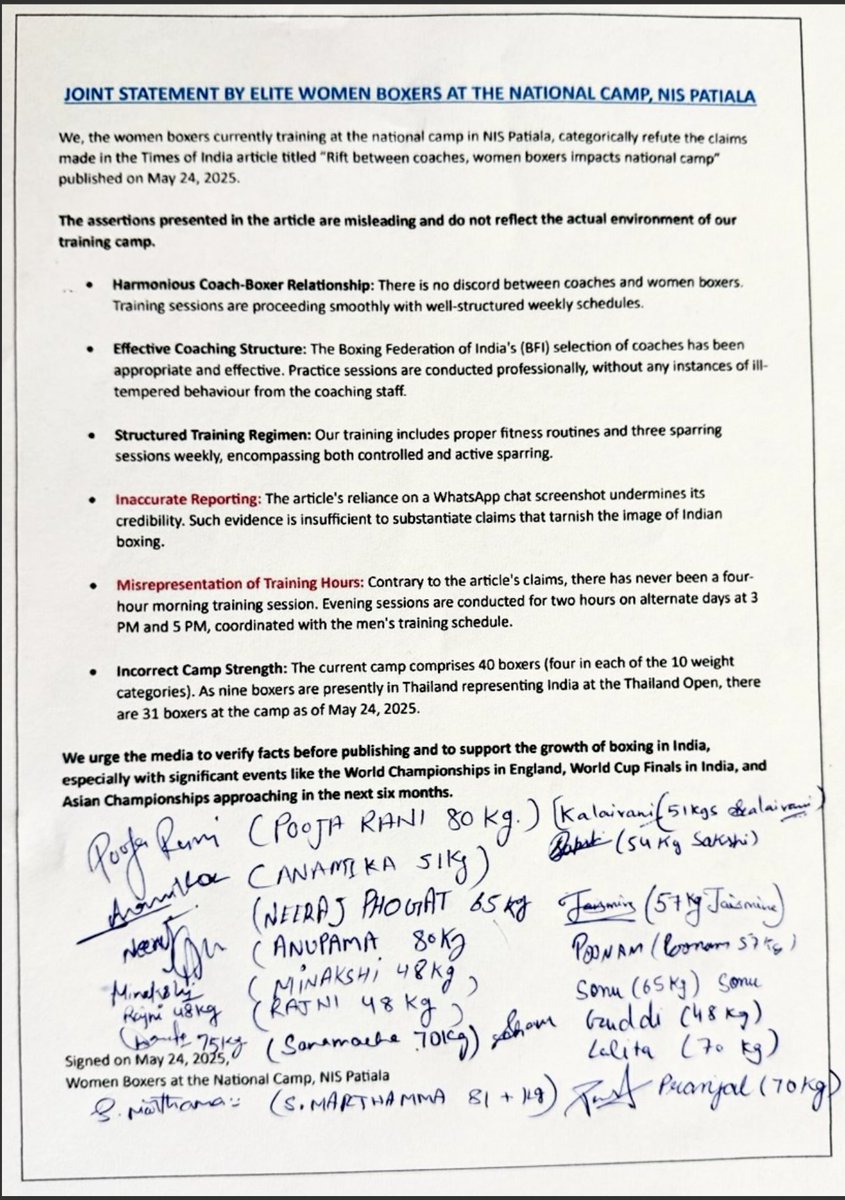 JOINT STATEMENT BY ELITE WOMEN BOXERS AT THE NATIONAL CAMP, NIS PATIALA
We, the women boxers currently training at the national camp in NIS Patiala, categorically refute the claims
made in the Times of India article titled "Rift between coaches, women boxers impacts national camp"
published on May 24, 2025.
The assertions presented in the article are misleading and do not reflect the actual environment of our
training camp.
• Harmonious Coach-Boxer Relationship: There is no discord between coaches and women boxers.
Training sessions are proceeding smoothly with well-structured weekly schedules.
• Effective Coaching Structure: The Boxing Federation of India's (BFI) selection of coaches has been
appropriate and effective. Practice sessions are conducted professionally, without any instances of ill-
tempered behaviour from the coaching staff.
• Structured Training Regimen: Our training includes proper fitness routines and three sparring
sessions weekly, encompassing both controlled and active sparring.
• Inaccurate Reporting: The article's reliance on a WhatsApp chat screenshot undermines its
credibility. Such evidence is insufficient to substantiate claims that tarnish the image of Indian
boxing.
• Misrepresentation of Training Hours: Contrary to the article's claims, there has never been a four-
hour morning training session. Evening sessions are conducted for two hours on alternate days at 3
PM and 5 PM, coordinated with the men's training schedule.
• Incorrect Camp Strength: The current camp comprises 40 boxers (four in each of the 10 weight
categories). As nine boxers are presently in Thailand representing India at the Thailand Open, there
are 31 boxers at the camp as of May 24, 2025.
We urge the media to verify facts before publishing and to support the growth of boxing in India,
especially with significant events like the World Championships in England, World Cup Finals in India, and
Asian Championships approaching in the next six months.
Pooja Rani (POOJA RANI 80 kg.) [Kalaivani (51kgs Kalaivani)
(54 Kg Sakshi)
Anamika (ANAMIKA 51Kg)
Neeraj (NEERAJ PHOGAT 65 kg Jaismine (57 Kg Jaismine)
(ANUPAMA 80Kg POONAM (Poonam 57 Kg)
Minakshi (MINAKSHI 48Kg) Sonu (65 Kg) Sonu
Rajni 48kg (RAJNI 48 Kg) Guddi (48 Kg)
75kg (Sanamacha 70Kg) Lalita (70 Kg)
Signed on May 24, 2025,
Women Boxers at the National Camp, NIS Patiala
(S. MARTHAMMA 81 + Kg) Pranjal (70 Kg)